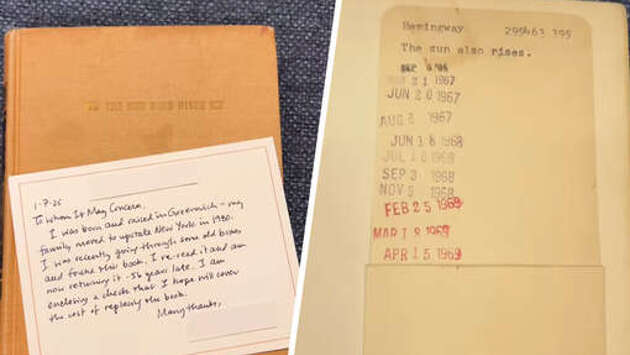 1-7-25
To Whom It May Concern,
I was born and raised in Greenwich - my
family moved to upstate New York in 1980.
I was recently going through some old boxes
and found this book. I re-read it and am
now returning it - 56 years late. I am
enclosing a check that I hope will cover
the cost of replacing the book.
Many thanks,
Hemingway 299463 395
The sun also rises.
21 1967
JUN 20 1967
AUG 2 1967
JUN 18 1968
JUL 1968
SEP 3 1968
NOV 5 1968
FEB 25 1969
MAR 18 1969
APR 15 1969